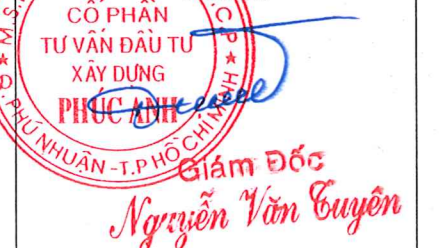 CỔ PHẦN
TƯ VẤN ĐẦU TƯ
XÂY DỰNG
PHÚC ANH
M.S.
C.P
Q. PHÚ NHUẬN - T.P HỒ CHÍ MINH
Giám Đốc
Nguyễn Văn Tuyên